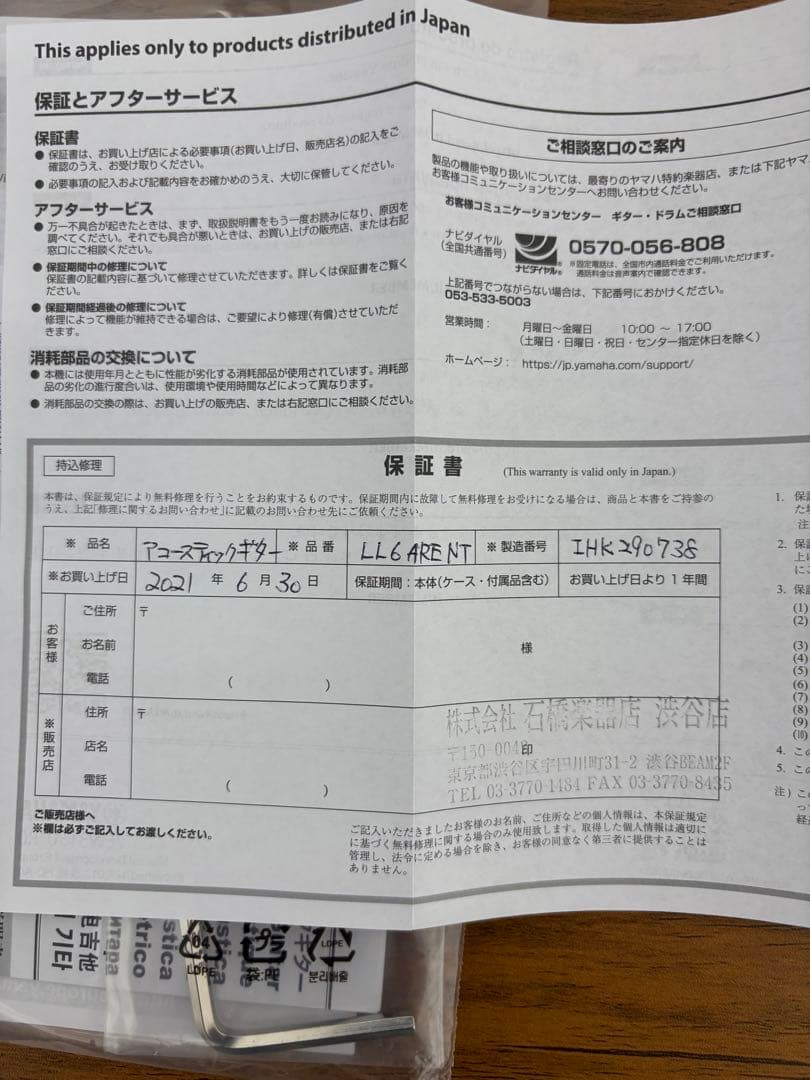 This applies only to products distributed in Japan
保証とアフターサービス
保証書
● 保証書は、お買い上げ店による必要事項(お買い上げ日、販売店名)の記入をご
確認のうえ、お受け取りください。
● 必要事項の記入および記載内容をお確かめのうえ、大切に保管してください。
アフターサービス
● 万一不具合が起きたときは、まず、取扱説明書をもう一度お読みになり、原因を
調べてください。それでも具合が悪いときは、お買い上げの販売店、または右記
窓口にご相談ください。
● 保証期間中の修理について
保証書の記載内容に基づいて修理させていただきます。詳しくは保証書をご覧く
ださい。
● 保証期間経過後の修理について
修理によって機能が維持できる場合は、ご要望により修理(有償)させていただ
きます。
消耗部品の交換について
● 本機には使用年月とともに性能が劣化する消耗部品が使用されています。消耗部
品の劣化の進行度合いは、使用環境や使用時間などによって異なります。
● 消耗部品の交換の際は、お買い上げの販売店、または右記窓口にご相談ください。
ご相談窓口のご案内
製品の機能や取り扱いについては、最寄りのヤマハ特約楽器店、または下記ヤマ
お客様コミュニケーションセンターへお問い合わせください。
お客様コミュニケーションセンター ギター・ドラムご相談窓口
ナビダイヤル
(全国共通番号)
ナビダイヤル®
0570-056-808
※固定電話は、全国市内通話料金でご利用いただけます。
通話料金は音声案内で確認できます。
上記番号でつながらない場合は、下記番号におかけください。
053-533-5003
営業時間： 月曜日～金曜日 10:00 ～ 17:00
(土曜日・日曜日・祝日・センター指定休日を除く)
ホームページ： https://jp.yamaha.com/support/
持込修理
保証書
(This warranty is valid only in Japan.)
本書は、保証規定により無料修理を行うことをお約束するものです。保証期間内に故障して無料修理をお受けになる場合は、商品と本書をご持参の
うえ、上記「修理に関するお問い合わせ」に記載のお問い合わせ先にご依頼ください。
※ 品名 アコースティックギター ※ 品番 LL6 ARE NT ※ 製造番号 IHK290738
※お買い上げ日 2021 年 6 月 30 日 保証期間：本体(ケース・付属品含む) お買い上げ日より 1 年間
お客様
ご住所 〒
お名前 様
電話 ( )
※販売店
住所 〒
店名 印
電話 ( )
株式会社 石橋楽器店 渋谷店
〒150-0042
東京都渋谷区宇田川町31-2 渋谷BEAM2F
TEL 03-3770-1484 FAX 03-3770-8435
ご販売店様へ
※欄は必ずご記入してお渡しください。
ご記入いただきましたお客様のお名前、ご住所などの個人情報は、本保証規定
に基づく無料修理に関する場合のみ使用致します。取得した個人情報は適切に
管理し、法令に定める場合を除き、お客様の同意なく第三者に提供することは
ありません。
1. 保証
た場
注
2. 保証
上げ
にこ
3. 保証
(1)
(2)
(3)
(4)
(5)
(6)
(7)
(8)
(9)
(10)
4. この
5. この
注) この
って
経過
04
LDPE
プラ
袋:PE
LDPE
분리배출
기타
吉他
гитара
ギター